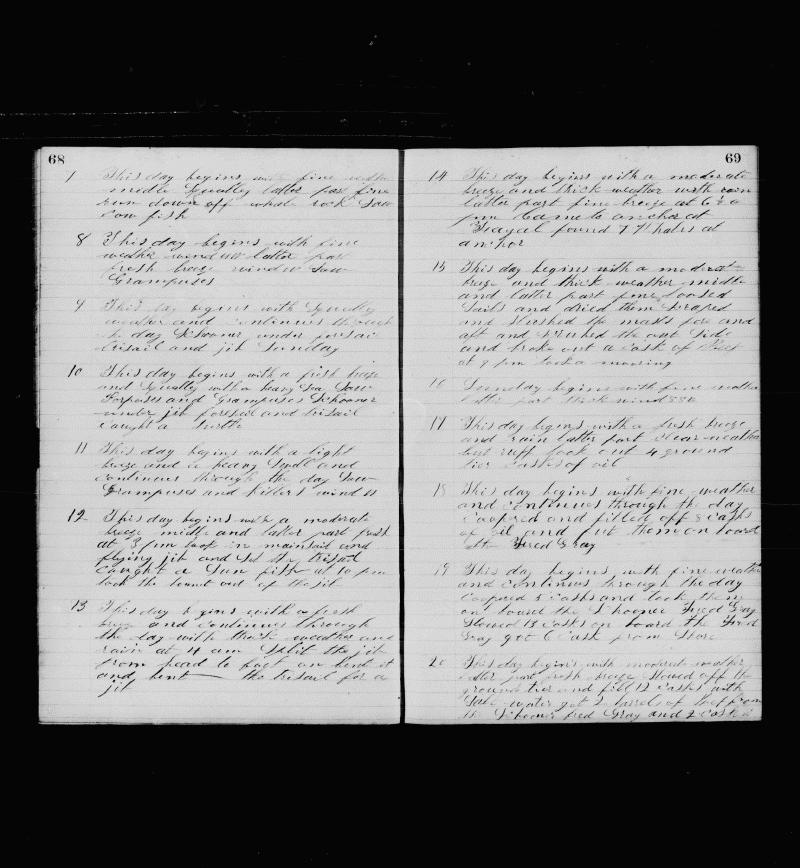 68
1 This day begins with fine weather
middle Squally latter part fine
run down off whale rock Saw
Cow fish
8 This day begins with fine
weather wind W latter part
fresh breeze wind W Saw
Grampuses
9 This day begins with Squally
weather and continues through
the day Schooner under foresail
trisail and jib Sunday
10 This day begins with a fresh breeze
and Squally with a heavy Sea Saw
Porposes and Grampuses Schooner
under jib forsail and trisail
caught a turtle
11 This day begins with a light
breeze and a heavy Swell and
continues through the day Saw
Grampuses and killers wind W
12 This day begins with a moderate
breeze middle and latter part fresh
at 3 pm took in mainsail and
flying jib and Set the trisail
caught a Sun fish at 10 pm
took the bonnet out of the jib
13 This day begins with a fresh
breeze and continues through
the day with thick weather and
rain at 4 am Split the jib
from head to foot un bent it
and bent the trisail for a
jib
69
14 This day begins with a moderate
breeze and thick weather with rain
latter part fine breeze at 6
pm Came to anchor at
Fayal found 7 Whalers at
anchor
15 This day begins with a moderate
breeze and thick weather middle
and latter part fine loosed
Sails and dried them Scraped
and Slushed the masts fore and
aft and Scrubed the out Side
and broke out a Cask of
at 9 pm took a mooring
16 Sunday begins with fine weather
latter part thick wind SSW
17 This day begins with a fresh breeze
and rain latter part Clear weather
but ruff took out 4 ground
tier Casks of oil
18 This day begins with fine weather
and continues through the day
Coopered and filled off 8 Casks
of oil and put them on board
the Fred Gray
19 This day begins with fine weather
and continues through the day
Coopered 5 Casks and took them
on board the Schooner Fred Gray
Stowed 13 Casks on board the Fred
Gray got 6 Cask from Shore
20 This day begins with moderate weather
latter part fresh breeze Stowed off the
ground tier and fill 12 Casks with
Salt water got 2 barrels of beef from
the Schooner Fred Gray and 2 Casks